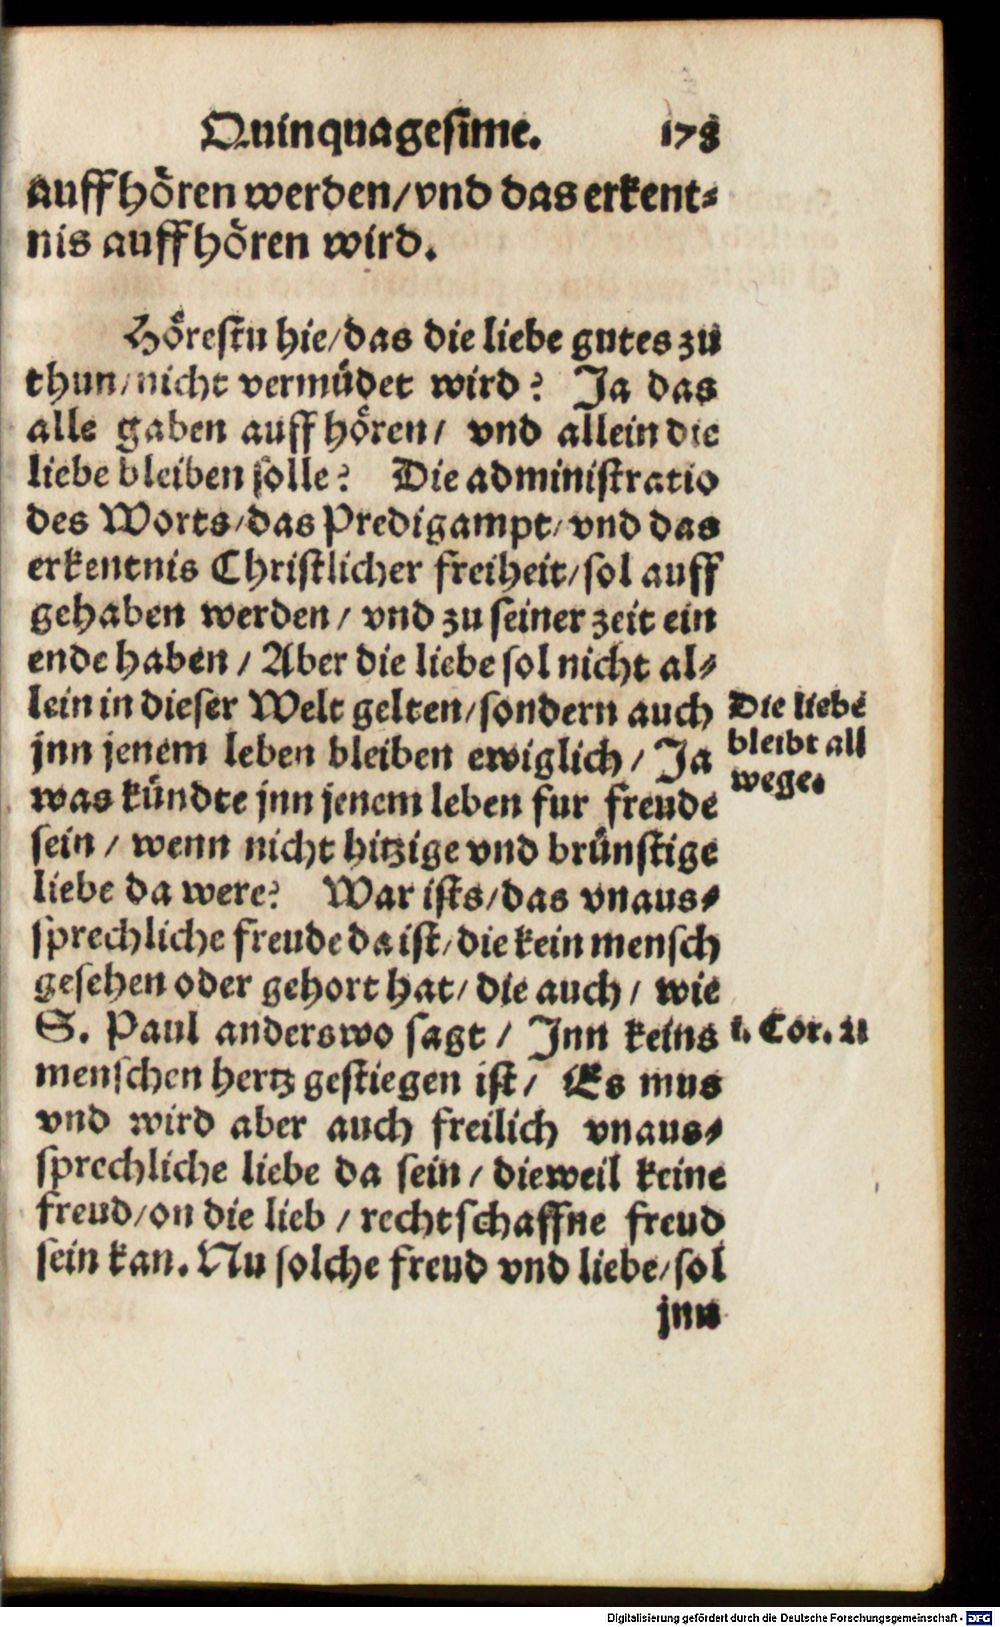 Quinquagesime. 178
auffhören werden/vnd das erkent-
nis auffhören wird.
Hörestu hie/das die liebe gutes zu
thun/nicht vermüdet wird? Ja das
alle gaben auffhören/ vnd allein die
liebe bleiben solle? Die administratio
des Worts/das Predigampt/vnd das
erkentnis Christlicher freiheit/sol auff
gehaben werden/ vnd zu seiner zeit ein
ende haben/ Aber die liebe sol nicht al-
lein in dieser Welt gelten/sondern auch
jnn jenem leben bleiben ewiglich/ Ja
was kündte jnn jenem leben fur freude
sein/ wenn nicht hitzige vnd brünstige
liebe da were? War ists/das vnaus-
sprechliche freude da ist/die kein mensch
gesehen oder gehort hat/ die auch/ wie
S. Paul anderswo sagt/ Inn keins
menschen hertz gestiegen ist/ Es mus
vnd wird aber auch freilich vnaus-
sprechliche liebe da sein/ dieweil keine
freud/on die lieb/ rechtschaffne freud
sein kan. Nu solche freud vnd liebe/sol
jnn
Die liebe
bleibt all
wege.
1. Cor. 2
Digitalisierung gefördert durch die Deutsche Forschungsgemeinschaft - DFG